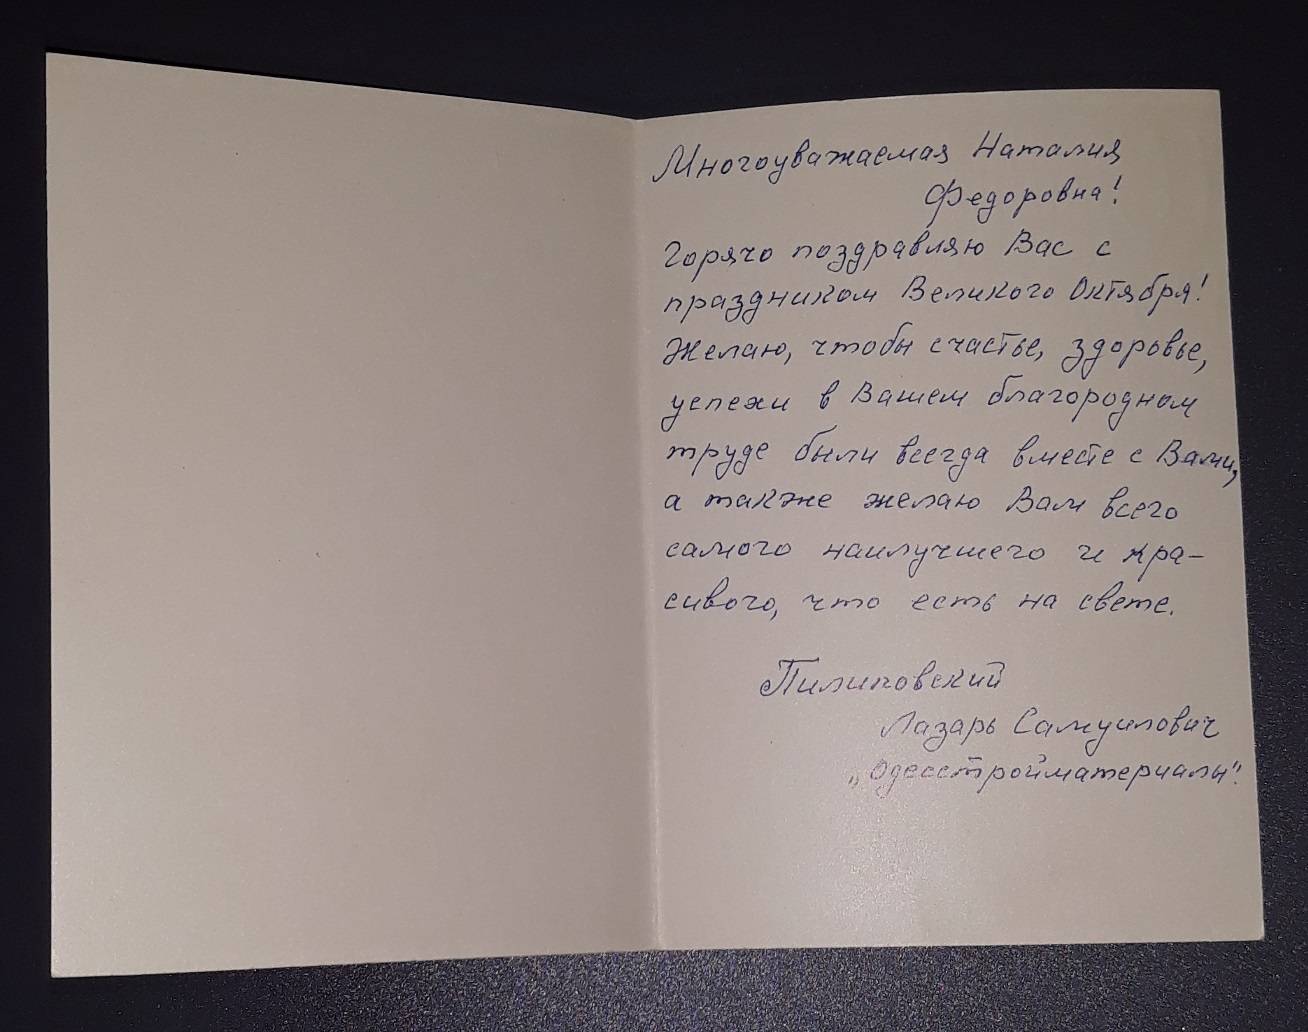 Многоуважаемая Наталия
Федоровна!
Горячо поздравляю Вас с
праздником Великого Октября!
Желаю, чтобы счастье, здоровье,
успехи в Вашем благородном
труде были всегда вместе с Вами,
а также желаю Вам всего
самого наилучшего и кра-
сивого, что есть на свете.
Пилиповский
Лазарь Самуилович
„Одесстройматериалы".